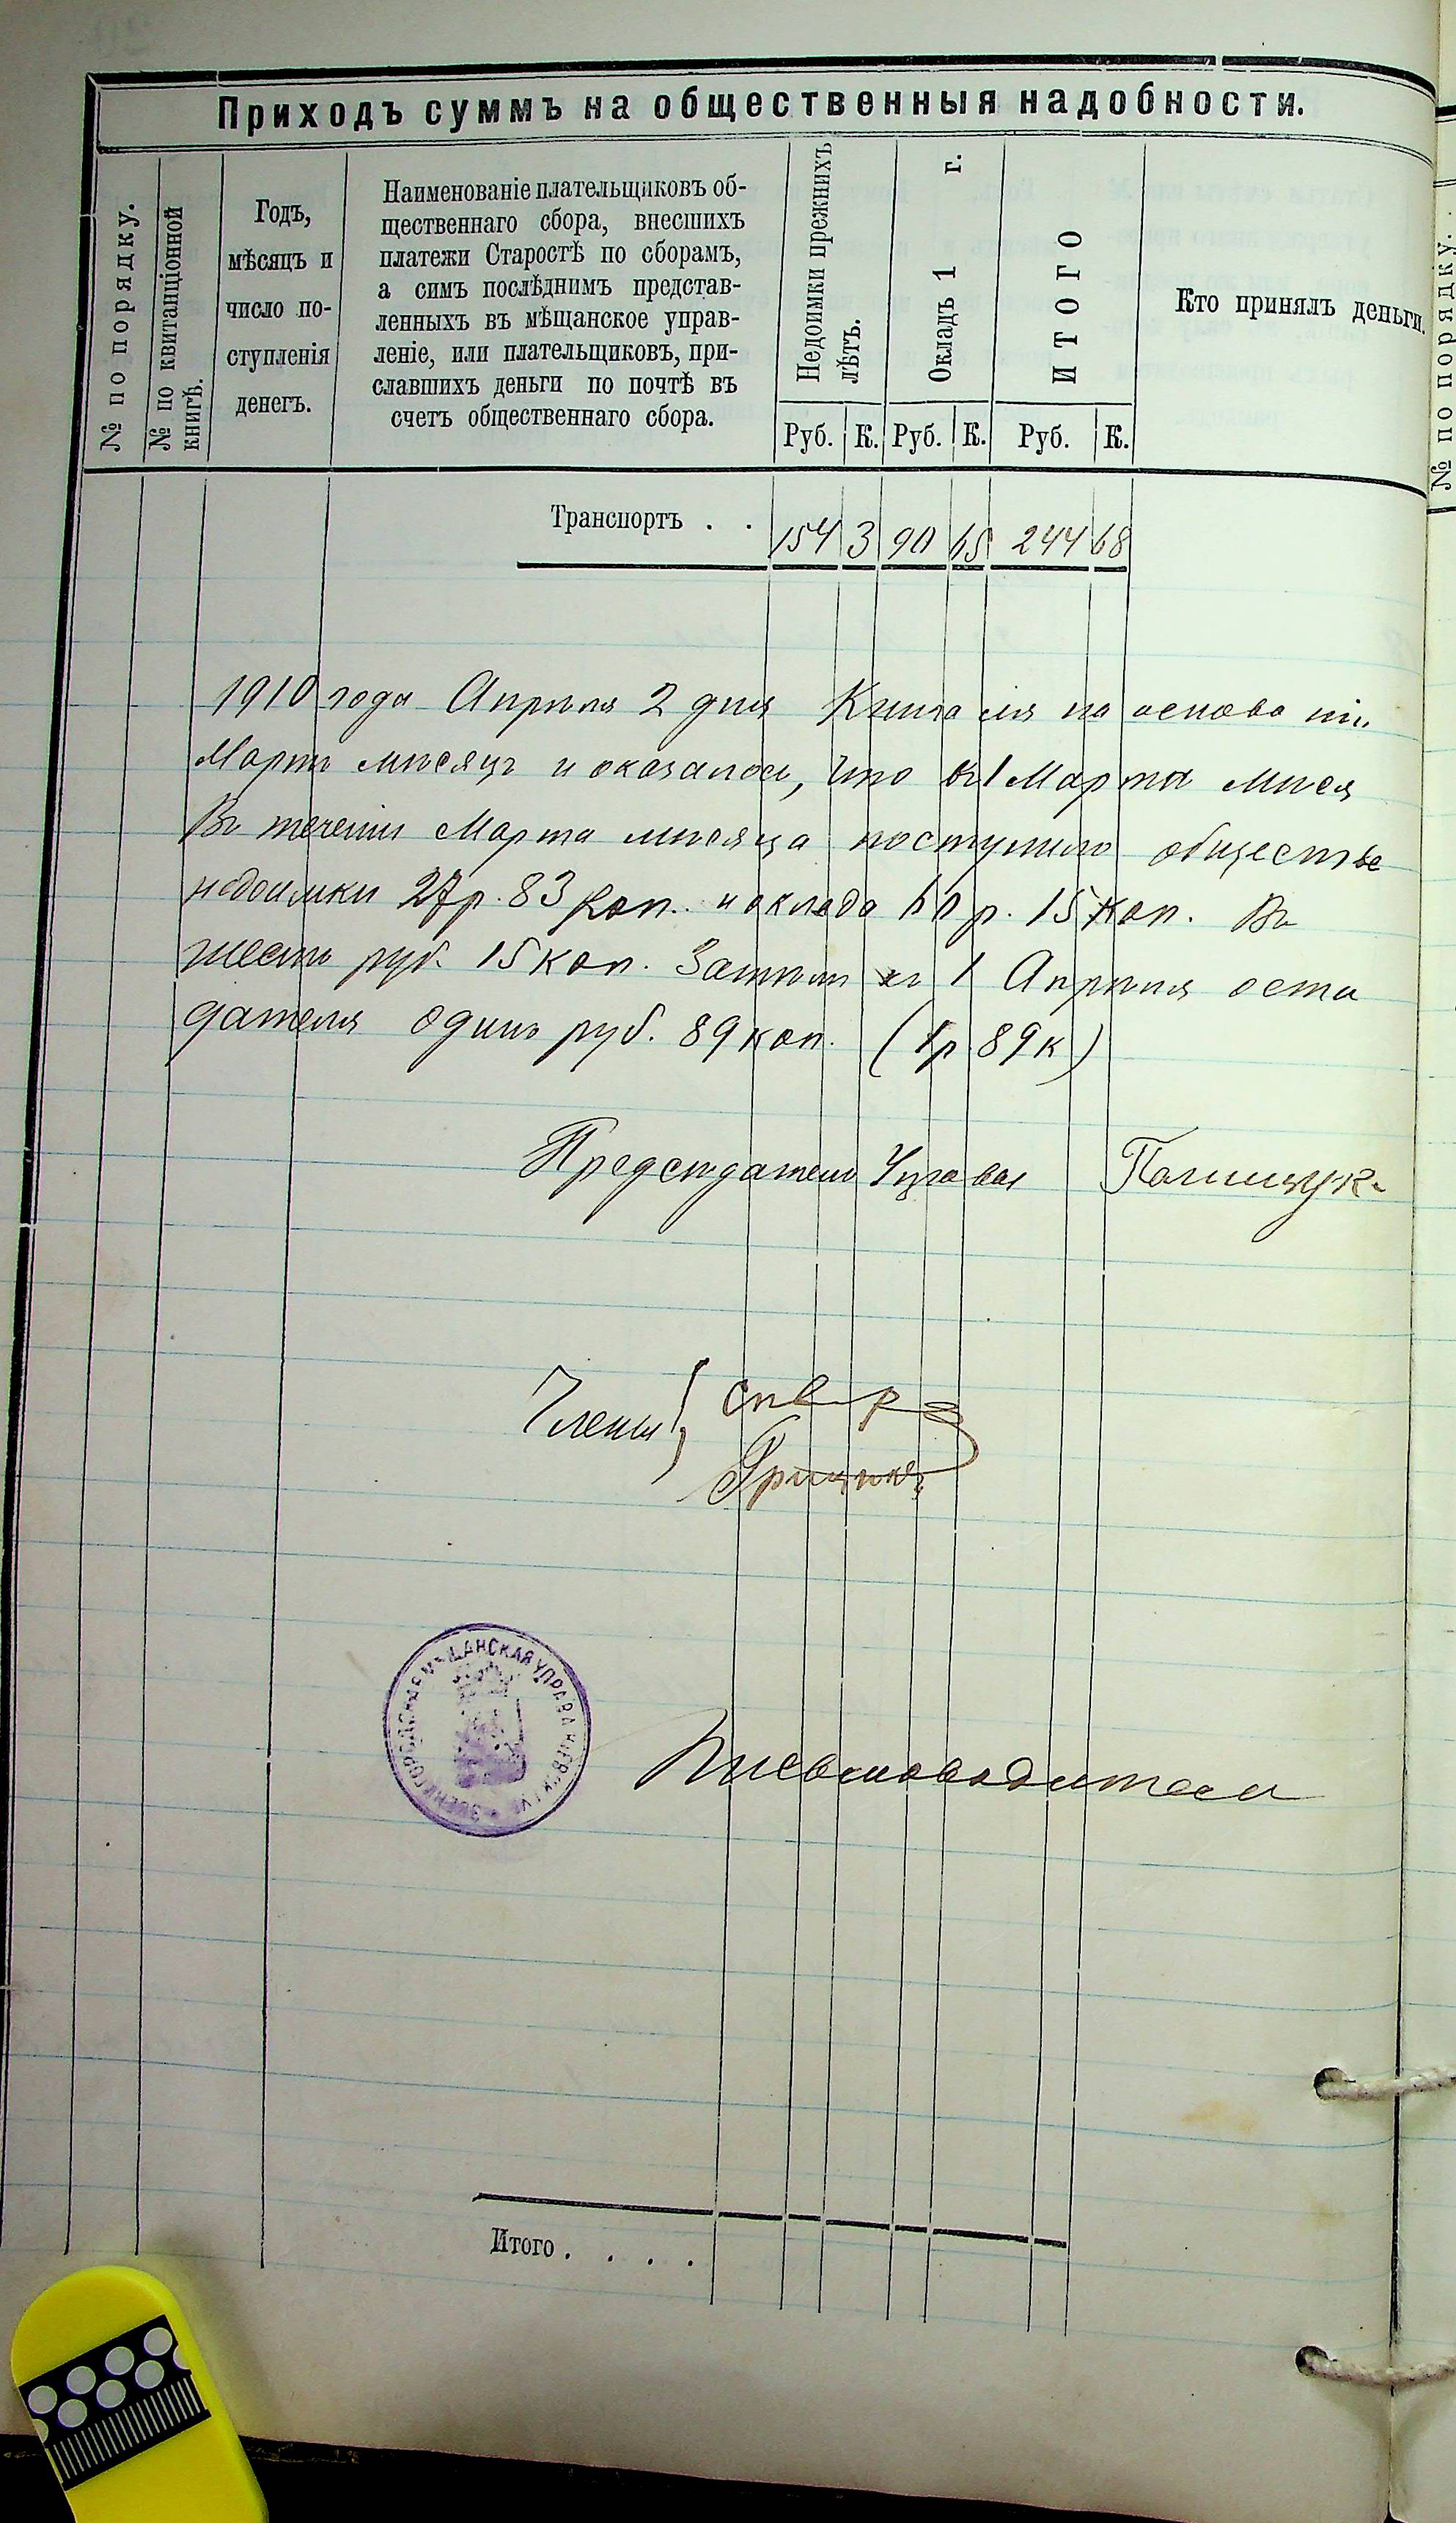 Приходъ суммъ на общественныя надобности.
№ по порядку.
№ по квитанціонной
книгѣ.
Годъ,
мѣсяцъ и
число по-
ступленія
денегъ.
Наименованіе плательщиковъ об-
щественнаго сбора, внесшихъ
платежи Старостѣ по сборамъ,
а симъ послѣднимъ представ-
ленныхъ въ мѣщанское управ-
леніе, или плательщиковъ, при-
славшихъ деньги по почтѣ въ
счетъ общественнаго сбора.
Недоимки прежнихъ
лѣтъ.
Окладъ 1 г.
ИТОГО
Кто принялъ деньги.
Руб. К. Руб. К. Руб. К.
№ по порядку.
Транспортъ . . 154 3 90 65 244 68
1910 года Апрѣля 2 дня Книга сія на основа ніи
Мартъ мѣсяцъ и оказалось, что къ 1 Марта мѣся
Въ теченіи Марта мѣсяца поступило обществе
недоимки 27 р. 83 коп. и оклада 60 р. 15 коп. Въ
шесть руб. 15 коп. Затѣмъ къ 1 Апрѣля оста
дателя одинъ руб. 89 коп. (1 р 89 к)
Предсѣдатель Управы Полищук
Члены
Грицина
МѢЩАНСКАЯ УПРАВА КІЕВСК ГУБ ЗВЕНИГОРОДСКАЯ
Письмоводитель
Итого . . . .